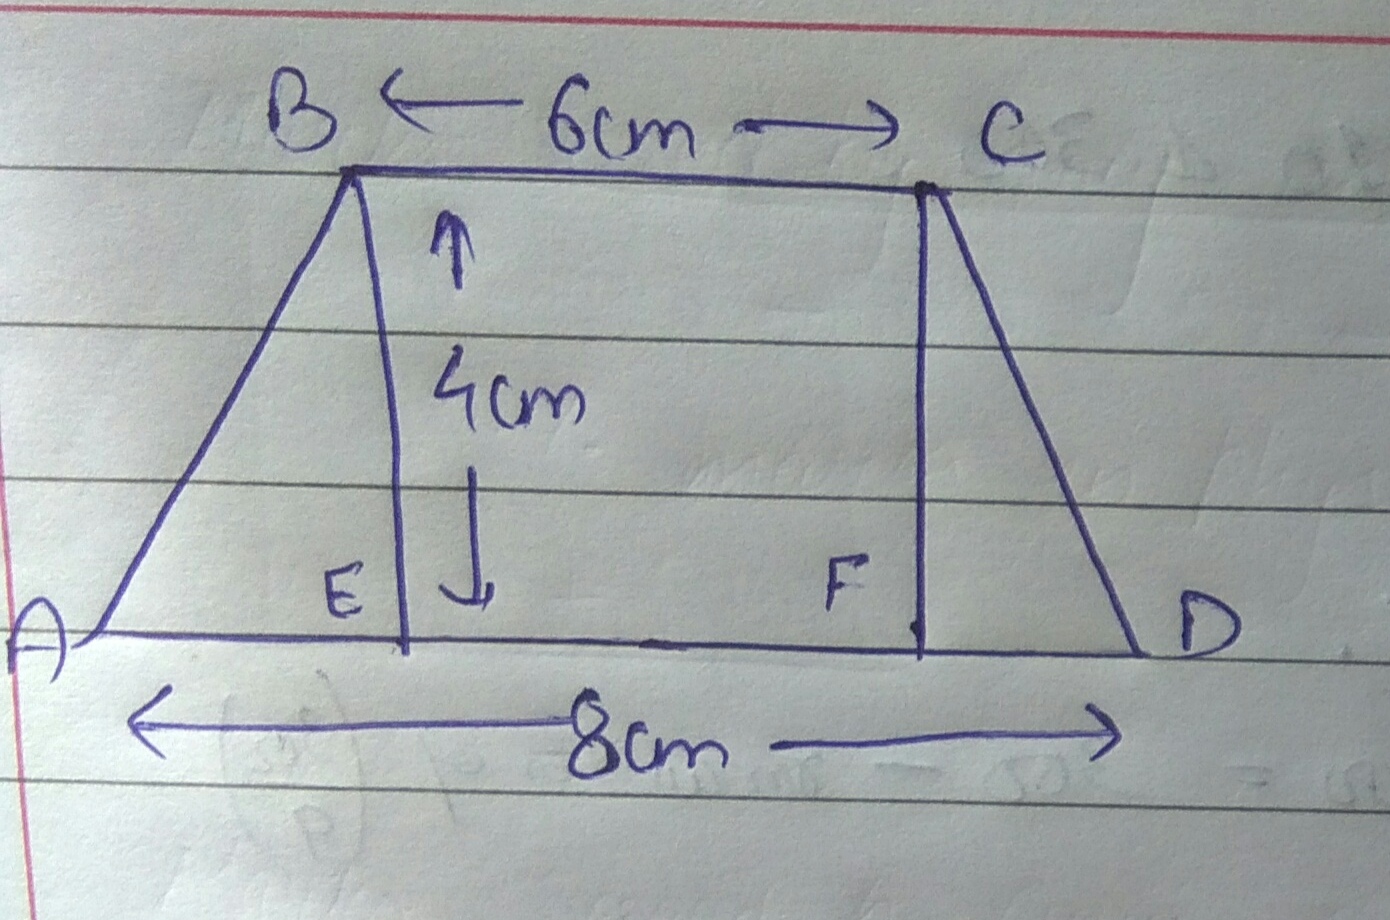 B ← 6cm → C
↑
4cm
↓
E F
A D
← 8cm →